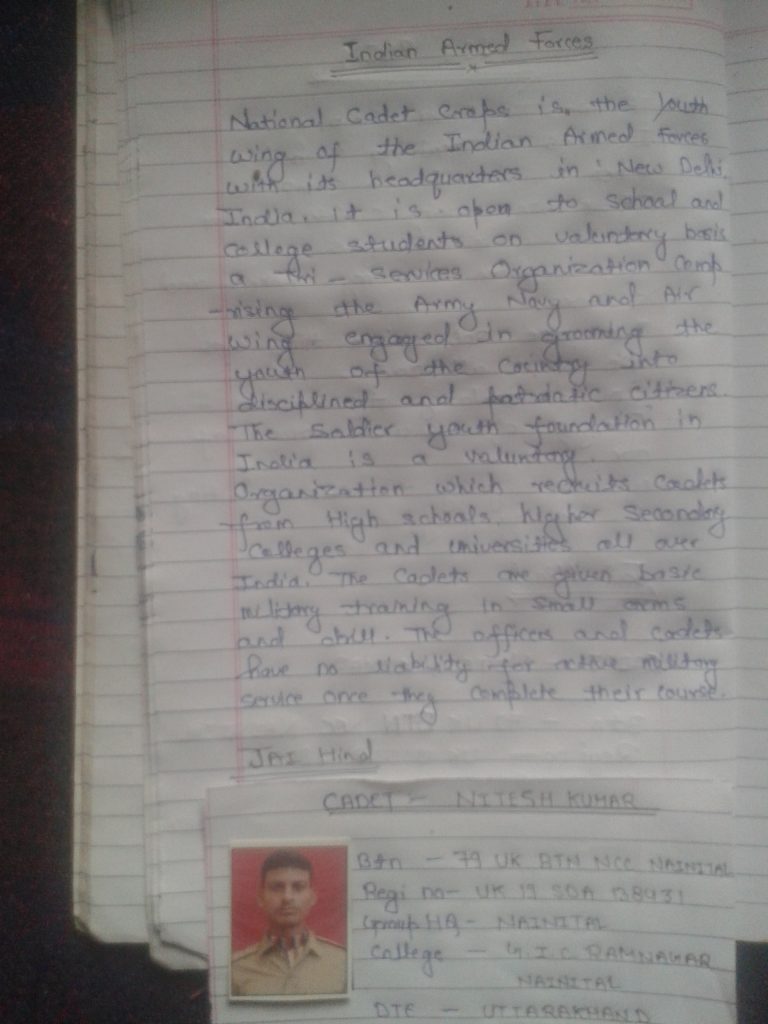 Indian Armed Forces
National Cadet Craps is, the Youth
wing of the Indian Armed Forces
with its headquarters in New Delhi,
India. it is open to School and
college students on valuntory basis
a tri - services Organization Comp
-rising the Army Navy and Air
wing engaged in grooming the
youth of the country into
disciplined and citizens.
The Saldier youth foundation in
India is a valuntory
Organization which recruits Cadets
from High schools, higher Secondry
Colleges and universities all over
India. The Cadets are given basic
militry training in small arms
and drill. The officers and cadets
have no liability for active militry
service once they complete their course.
JAI Hind
CADET - NITESH KUMAR
Btn - 79 UK BTN NCC NAINITAL
Regi no- UK 19 SDA 138431
Group HQ - NAINITAL
College - G.I.C RAMNAGAR
NAINITAL
DTE - UTTARAKHAND